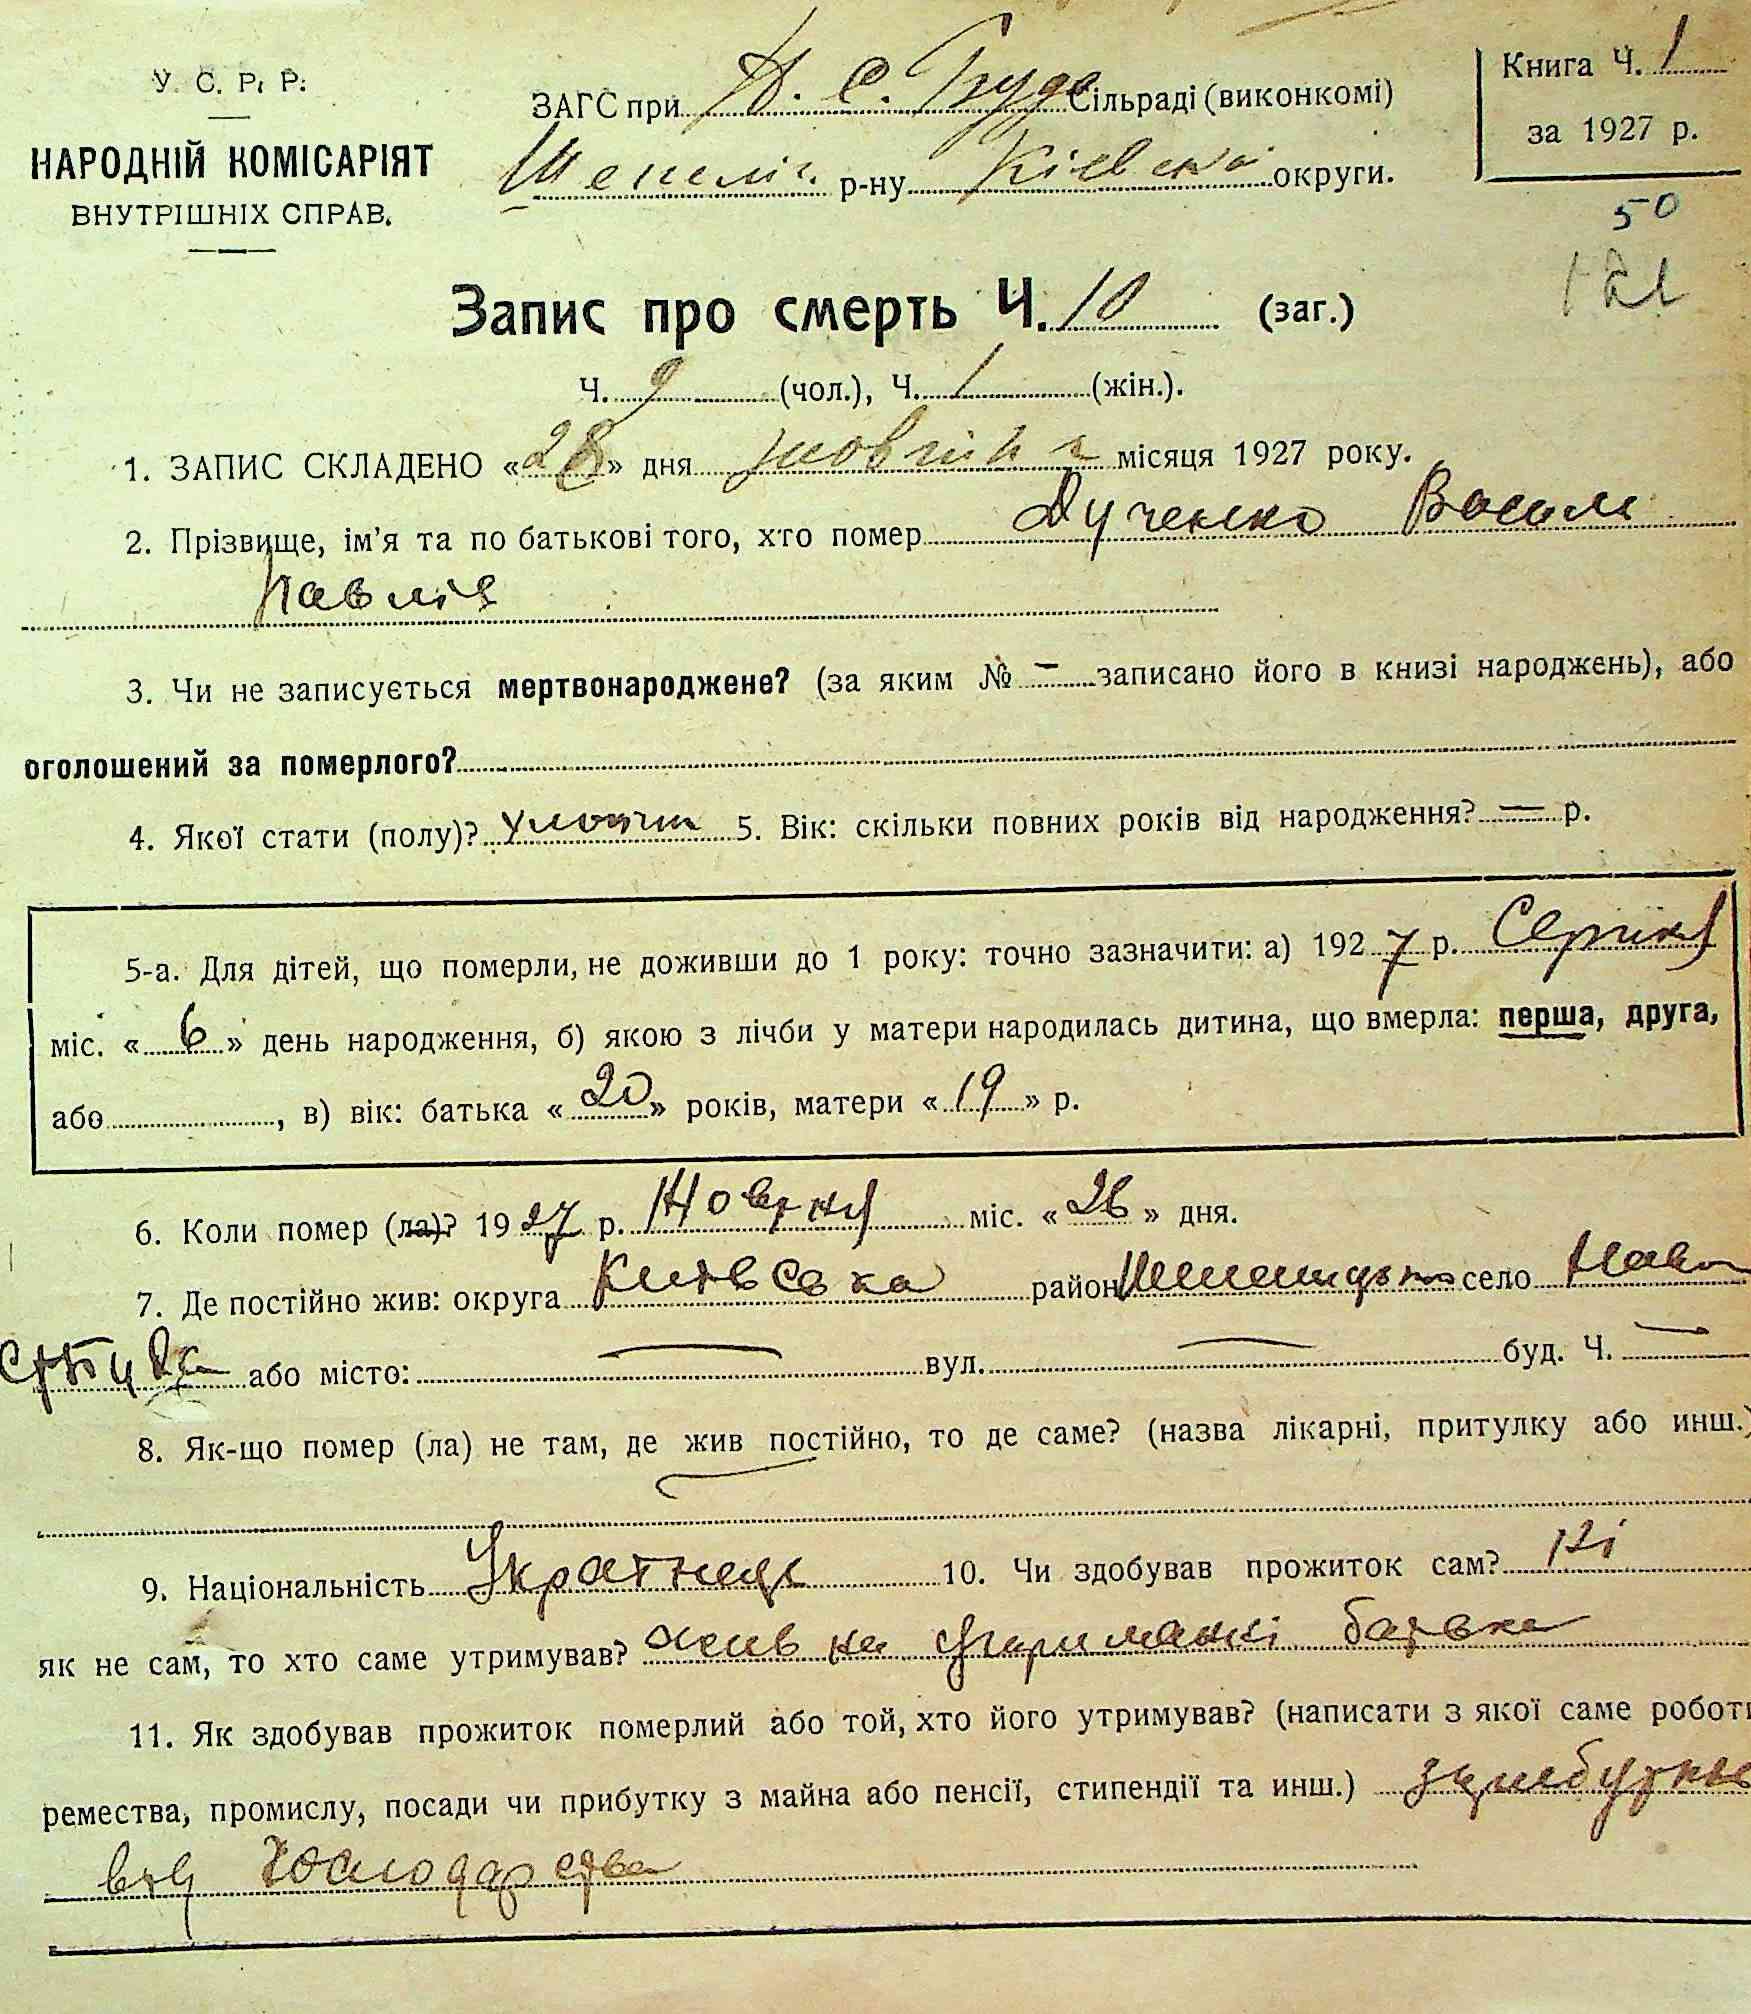 У. С. Р. Р.
НАРОДНІЙ КОМІСАРІЯТ
ВНУТРІШНІХ СПРАВ.
ЗАГС при Н. С. Буда Сільраді (виконкомі)
Шепеліч. р-ну Київська округи.
Книга Ч. 1
за 1927 р.
50
121
Запис про смерть Ч. 10 (заг.)
Ч. 9 (чол.), Ч. 1 (жін.).
1. ЗАПИС СКЛАДЕНО «28» дня жовтня місяця 1927 року.
2. Прізвище, ім'я та по батькові того, хто помер Дученко Василь
Павлів
3. Чи не записується мертвонароджене? (за яким № – записано його в книзі народжень), або
оголошений за померлого?
4. Якої стати (полу)? 5. Вік: скільки повних років від народження? — р.
5-а. Для дітей, що померли, не доживши до 1 року: точно зазначити: а) 1927 р. Серпня
міс. «6» день народження, б) якою з лічби у матери народилась дитина, що вмерла: перша, друга,
або , в) вік: батька «20» років, матери «19» р.
6. Коли помер (ла)? 1927 р. Жовтня міс. «26» дня.
7. Де постійно жив: округа Київська район село Нова
або місто: — вул. — буд. Ч. —
8. Як-що помер (ла) не там, де жив постійно, то де саме? (назва лікарні, притулку або инш.)
9. Національність Українець 10. Чи здобував прожиток сам? Ні
як не сам, то хто саме утримував? жив на утриманні батька
11. Як здобував прожиток померлий або той, хто його утримував? (написати з якої саме роботи
ремества, промислу, посади чи прибутку з майна або пенсії, стипендії та инш.) з прибутків
від господарства